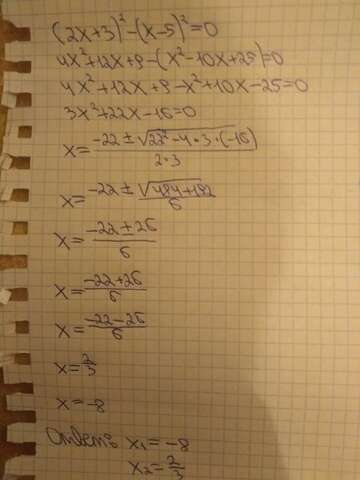 (2x+3)²-(x-5)²=0
4x²+12x+9-(x²-10x+25)=0
4x²+12x+9-x²+10x-25=0
3x²+22x-16=0
x=\frac{-22±√(22²-4·3·(-16))}{2·3}
x=\frac{-22±√(484+192)}{6}
x=\frac{-22±26}{6}
x=\frac{-22+26}{6}
x=\frac{-22-26}{6}
x=\frac{2}{3}
x=-8
Ответ: x₁=-8
x₂=\frac{2}{3}